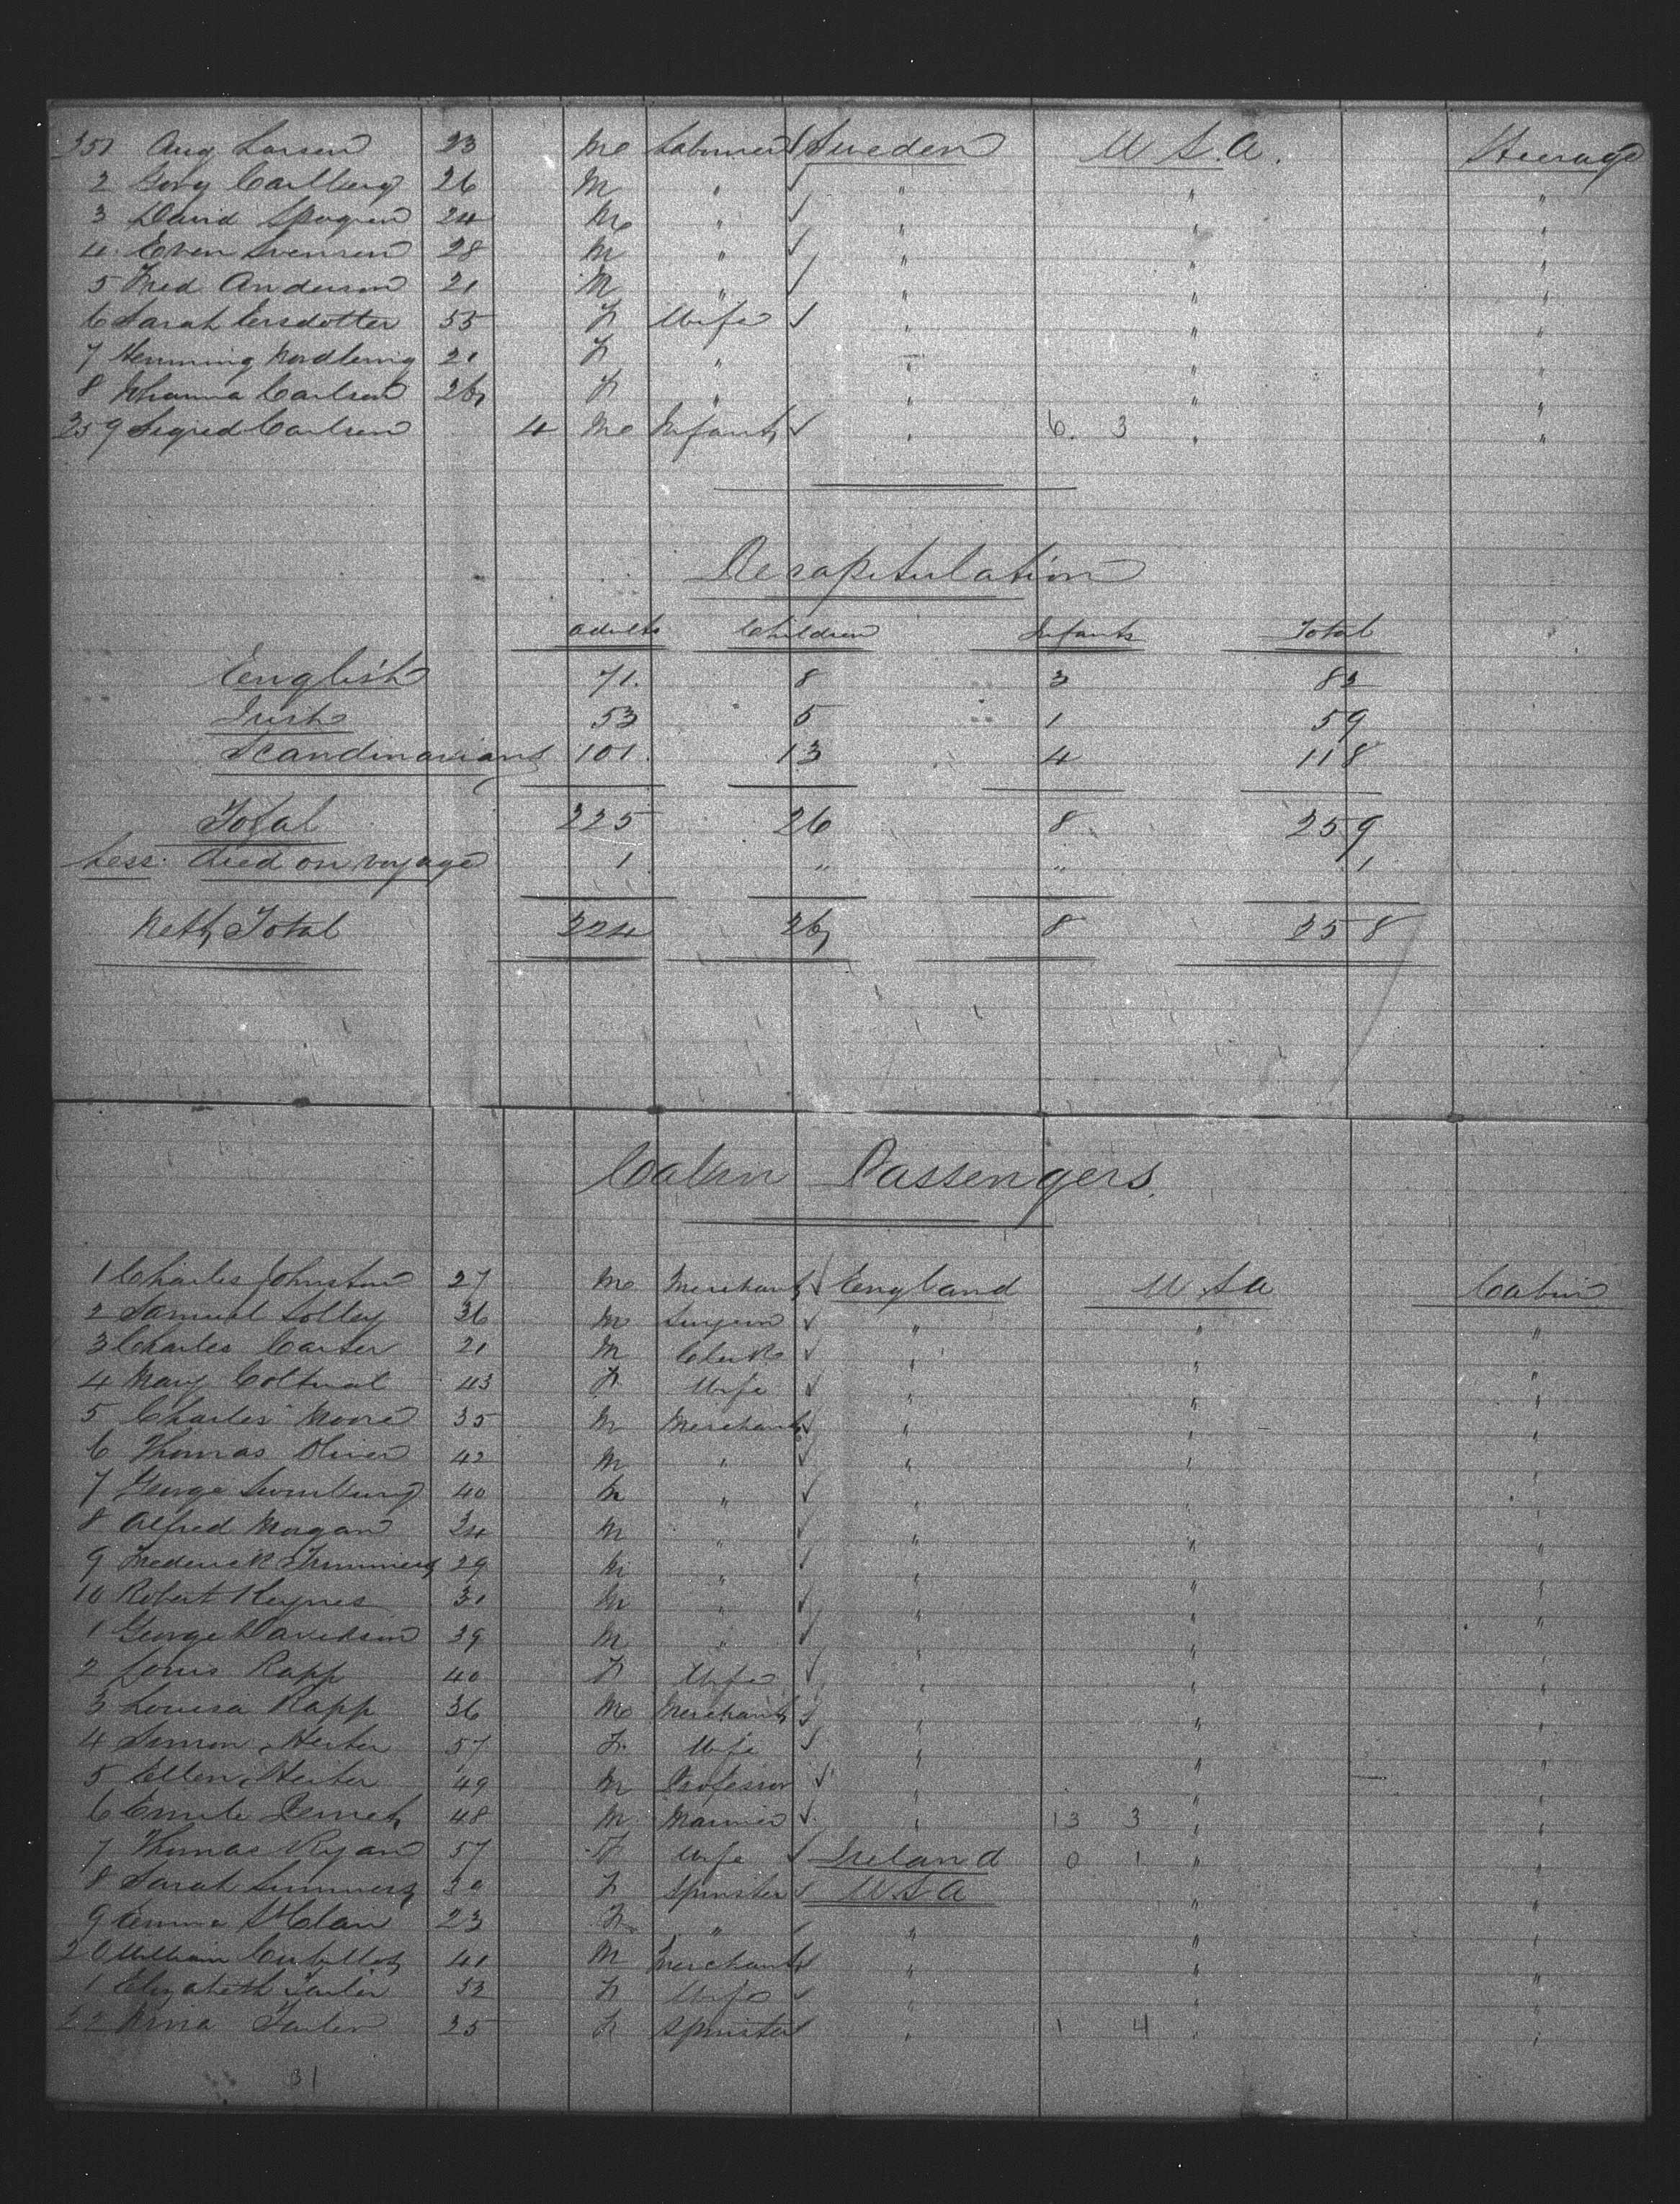 251 Aug Larsen 23 M Labourer Sweden U S.A. Steerage
2 Carlberg 26 M " " " "
3 David 24 M " " " "
4 Even Svensen 28 M " " " "
5 Fred Anderson 21 M " " " "
6 Sarah Persdotter 55 F Wife " " "
7 Henning Nordberg 21 F " " " "
8 Johanna Carlson 26 F " " " "
259 Sigrid Carlson 4 M Infant " 6. 3 " "
Recapitulation
Adults Children Infants Total
English 71. 8 3 82
Irish 53 5 1 59
Scandinavians 101. 13 4 118
Total 225 26 8 259
Less: died on voyage 1 " " 1
Nett Total 224 26 8 258
Cabin Passengers.
1 Charles Johnston 27 M Merchant England U S A Cabin
2 Samuel Solley 36 M Surgeon " " "
3 Charles Carter 21 M Clerk " " "
4 Mary 43 F Wife " " "
5 Charles Moore 35 M Merchant " " "
6 Thomas Oliver 42 M " " " "
7 George 40 M " " " "
8 Alfred Morgan 34 M " " " "
9 Frederick 29 M " " " "
10 Robert Keynes 31 M " " " "
1 George Davidson 39 M " " " "
2 Louis Rapp 40 F Wife " " "
3 Louisa Rapp 36 M Merchant " " "
4 Simon Herter 57 F Wife " " "
5 Ellen Herter 49 M Professor " " "
6 Emile 48 M Mariner " 13 3 " "
7 Thomas Ryan 57 F Wife Ireland 0 1 " "
8 Sarah 30 F Spinster U S A " "
9 Emma St Clair 23 F " " " "
20 William 41 M Merchant " " "
1 Elizabeth 52 F Wife " " "
22 Anna 25 F Spinster " 1 4 " "
31